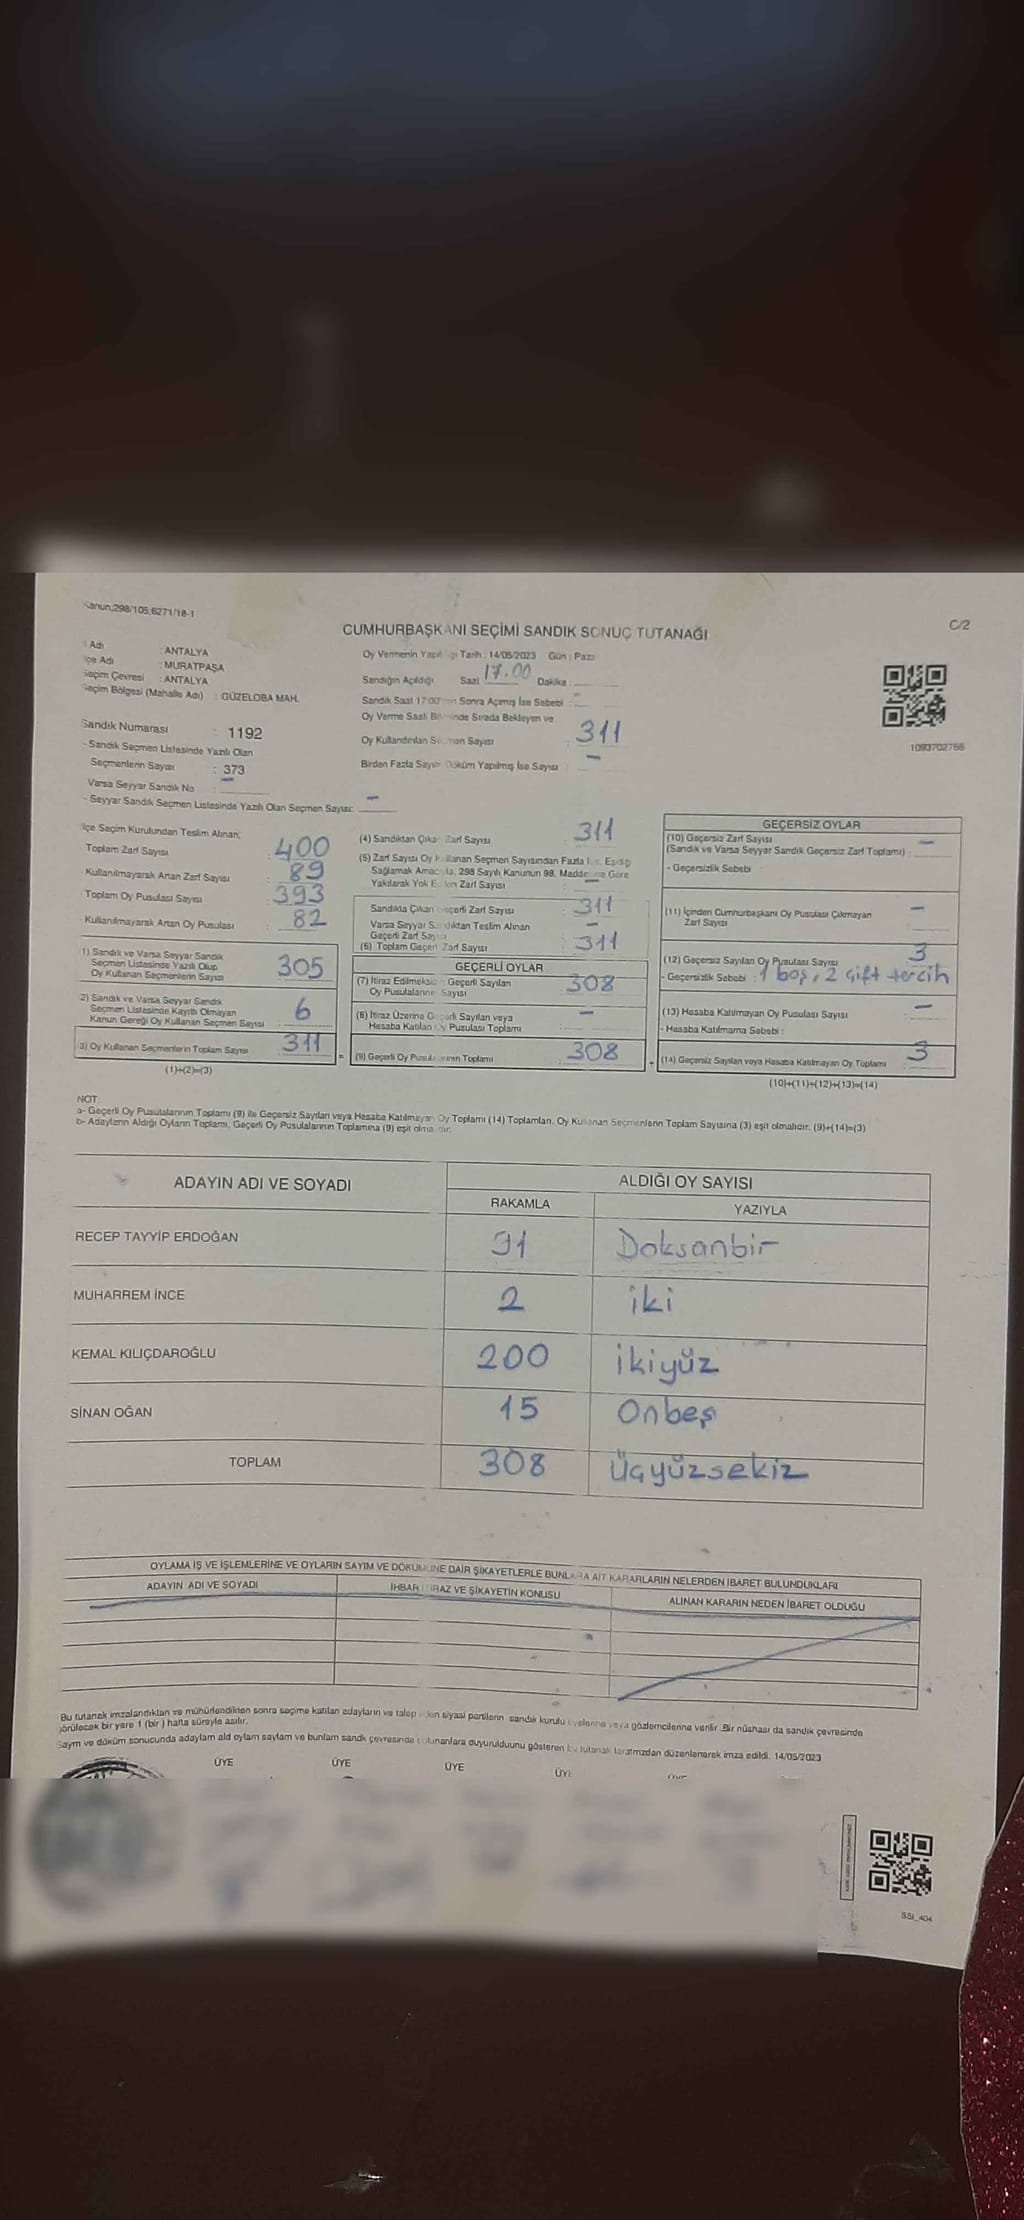 Kanun;298/105;6271/18-1
C/2
CUMHURBAŞKANI SEÇİMİ SANDIK SONUÇ TUTANAĞI
Adı : ANTALYA
Adı : MURATPAŞA
Seçim Çevresi : ANTALYA
Seçim Bölgesi (Mahalle Adı) : GÜZELOBA MAH.
Sandık Numarası : 1192
- Sandık Seçmen Listesinde Yazılı Olan
Seçmenlerin Sayısı : 373
Varsa Seyyar Sandık No : -
- Seyyar Sandık Seçmen Listesinde Yazılı Olan Seçmen Sayısı: -
Oy Vermenin Tarih : 14/05/2023 Gün :
Sandığın Açıldığı Saat 17.00 Dakika :
Sandık Saat 17:00 Sonra Açılmış İse Sebebi : -
Oy Verme Saati Sırada Bekleyen ve
Oy Kullandırılan Seçmen Sayısı : 311
Birden Fazla Sayım Döküm Yapılmış İse Sayısı : -
1093702766
İlçe Seçim Kurulundan Teslim Alınan;
Toplam Zarf Sayısı : 400
Kullanılmayarak Artan Zarf Sayısı : 89
Toplam Oy Pusulası Sayısı : 393
Kullanılmayarak Artan Oy Pusulası : 82
1) Sandık ve Varsa Seyyar Sandık
Seçmen Listesinde Yazılı Olup
Oy Kullanan Seçmenlerin Sayısı : 305
2) Sandık ve Varsa Seyyar Sandık
Seçmen Listesinde Kayıtlı Olmayan
Kanun Gereği Oy Kullanan Seçmen Sayısı : 6
3) Oy Kullanan Seçmenlerin Toplam Sayısı : 311
(1)+(2)=(3)
=
(4) Sandıktan Çıkan Zarf Sayısı : 311
(5) Zarf Sayısı Oy Kullanan Seçmen Sayısından Fazla İse, Eşitliği
Sağlamak Amacıyla, 298 Sayılı Kanunun 98. Maddesine Göre
Yakılarak Yok Edilen Zarf Sayısı : -
Sandıkta Çıkan Geçerli Zarf Sayısı : 311
Varsa Seyyar Sandıktan Teslim Alınan
Geçerli Zarf Sayısı : -
(6) Toplam Geçerli Zarf Sayısı : 311
GEÇERLİ OYLAR
(7) İtiraz Edilmeksizin Geçerli Sayılan
Oy Pusulalarının Sayısı : 308
(8) İtiraz Üzerine Geçerli Sayılan veya
Hesaba Katılan Oy Pusulası Toplamı : -
(9) Geçerli Oy Pusulalarının Toplamı : 308
+
GEÇERSİZ OYLAR
(10) Geçersiz Zarf Sayısı
(Sandık ve Varsa Seyyar Sandık Geçersiz Zarf Toplamı) : -
- Geçersizlik Sebebi :
(11) İçinden Cumhurbaşkanı Oy Pusulası Çıkmayan
Zarf Sayısı : -
(12) Geçersiz Sayılan Oy Pusulası Sayısı : 3
- Geçersizlik Sebebi : 1 boş, 2 çift tercih
(13) Hesaba Katılmayan Oy Pusulası Sayısı : -
- Hesaba Katılmama Sebebi :
(14) Geçersiz Sayılan veya Hesaba Katılmayan Oy Toplamı : 3
(10)+(11)+(12)+(13)=(14)
NOT:
a- Geçerli Oy Pusulalarının Toplamı (9) ile Geçersiz Sayılan veya Hesaba Katılmayan Oy Toplamı (14) Toplamları, Oy Kullanan Seçmenlerin Toplam Sayısına (3) eşit olmalıdır. (9)+(14)=(3)
b- Adayların Aldığı Oyların Toplamı, Geçerli Oy Pusulalarının Toplamına (9) eşit olmalıdır.
ADAYIN ADI VE SOYADI ALDIĞI OY SAYISI
RAKAMLA YAZIYLA
RECEP TAYYİP ERDOĞAN 91 Doksanbir
MUHARREM İNCE 2 iki
KEMAL KILIÇDAROĞLU 200 ikiyüz
SİNAN OĞAN 15 Onbeş
TOPLAM 308 Üçyüzsekiz
OYLAMA İŞ VE İŞLEMLERİNE VE OYLARIN SAYIM VE DÖKÜMÜNE DAİR ŞİKAYETLERLE BUNLARA AİT KARARLARIN NELERDEN İBARET BULUNDUKLARI
ADAYIN ADI VE SOYADI İHBAR İTİRAZ VE ŞİKAYETİN KONUSU ALINAN KARARIN NEDEN İBARET OLDUĞU
Bu tutanak imzalandıktan ve mühürlendikten sonra seçime katılan adayların ve talep eden siyasi partilerin sandık kurulu üyelerine veya gözlemcilerine verilir. Bir nüshası da sandık çevresinde
görülecek bir yere 1 (bir ) hafta süreyle asılır.
Sayım ve döküm sonucunda adayların ald oyların sayları ve bunların sandk çevresinde bulunanlara duyurulduunu gösteren bu tutanak taraftmzdan düzenlenerek imza edildi. 14/05/2023
ÜYE ÜYE ÜYE ÜYE
SSI_404